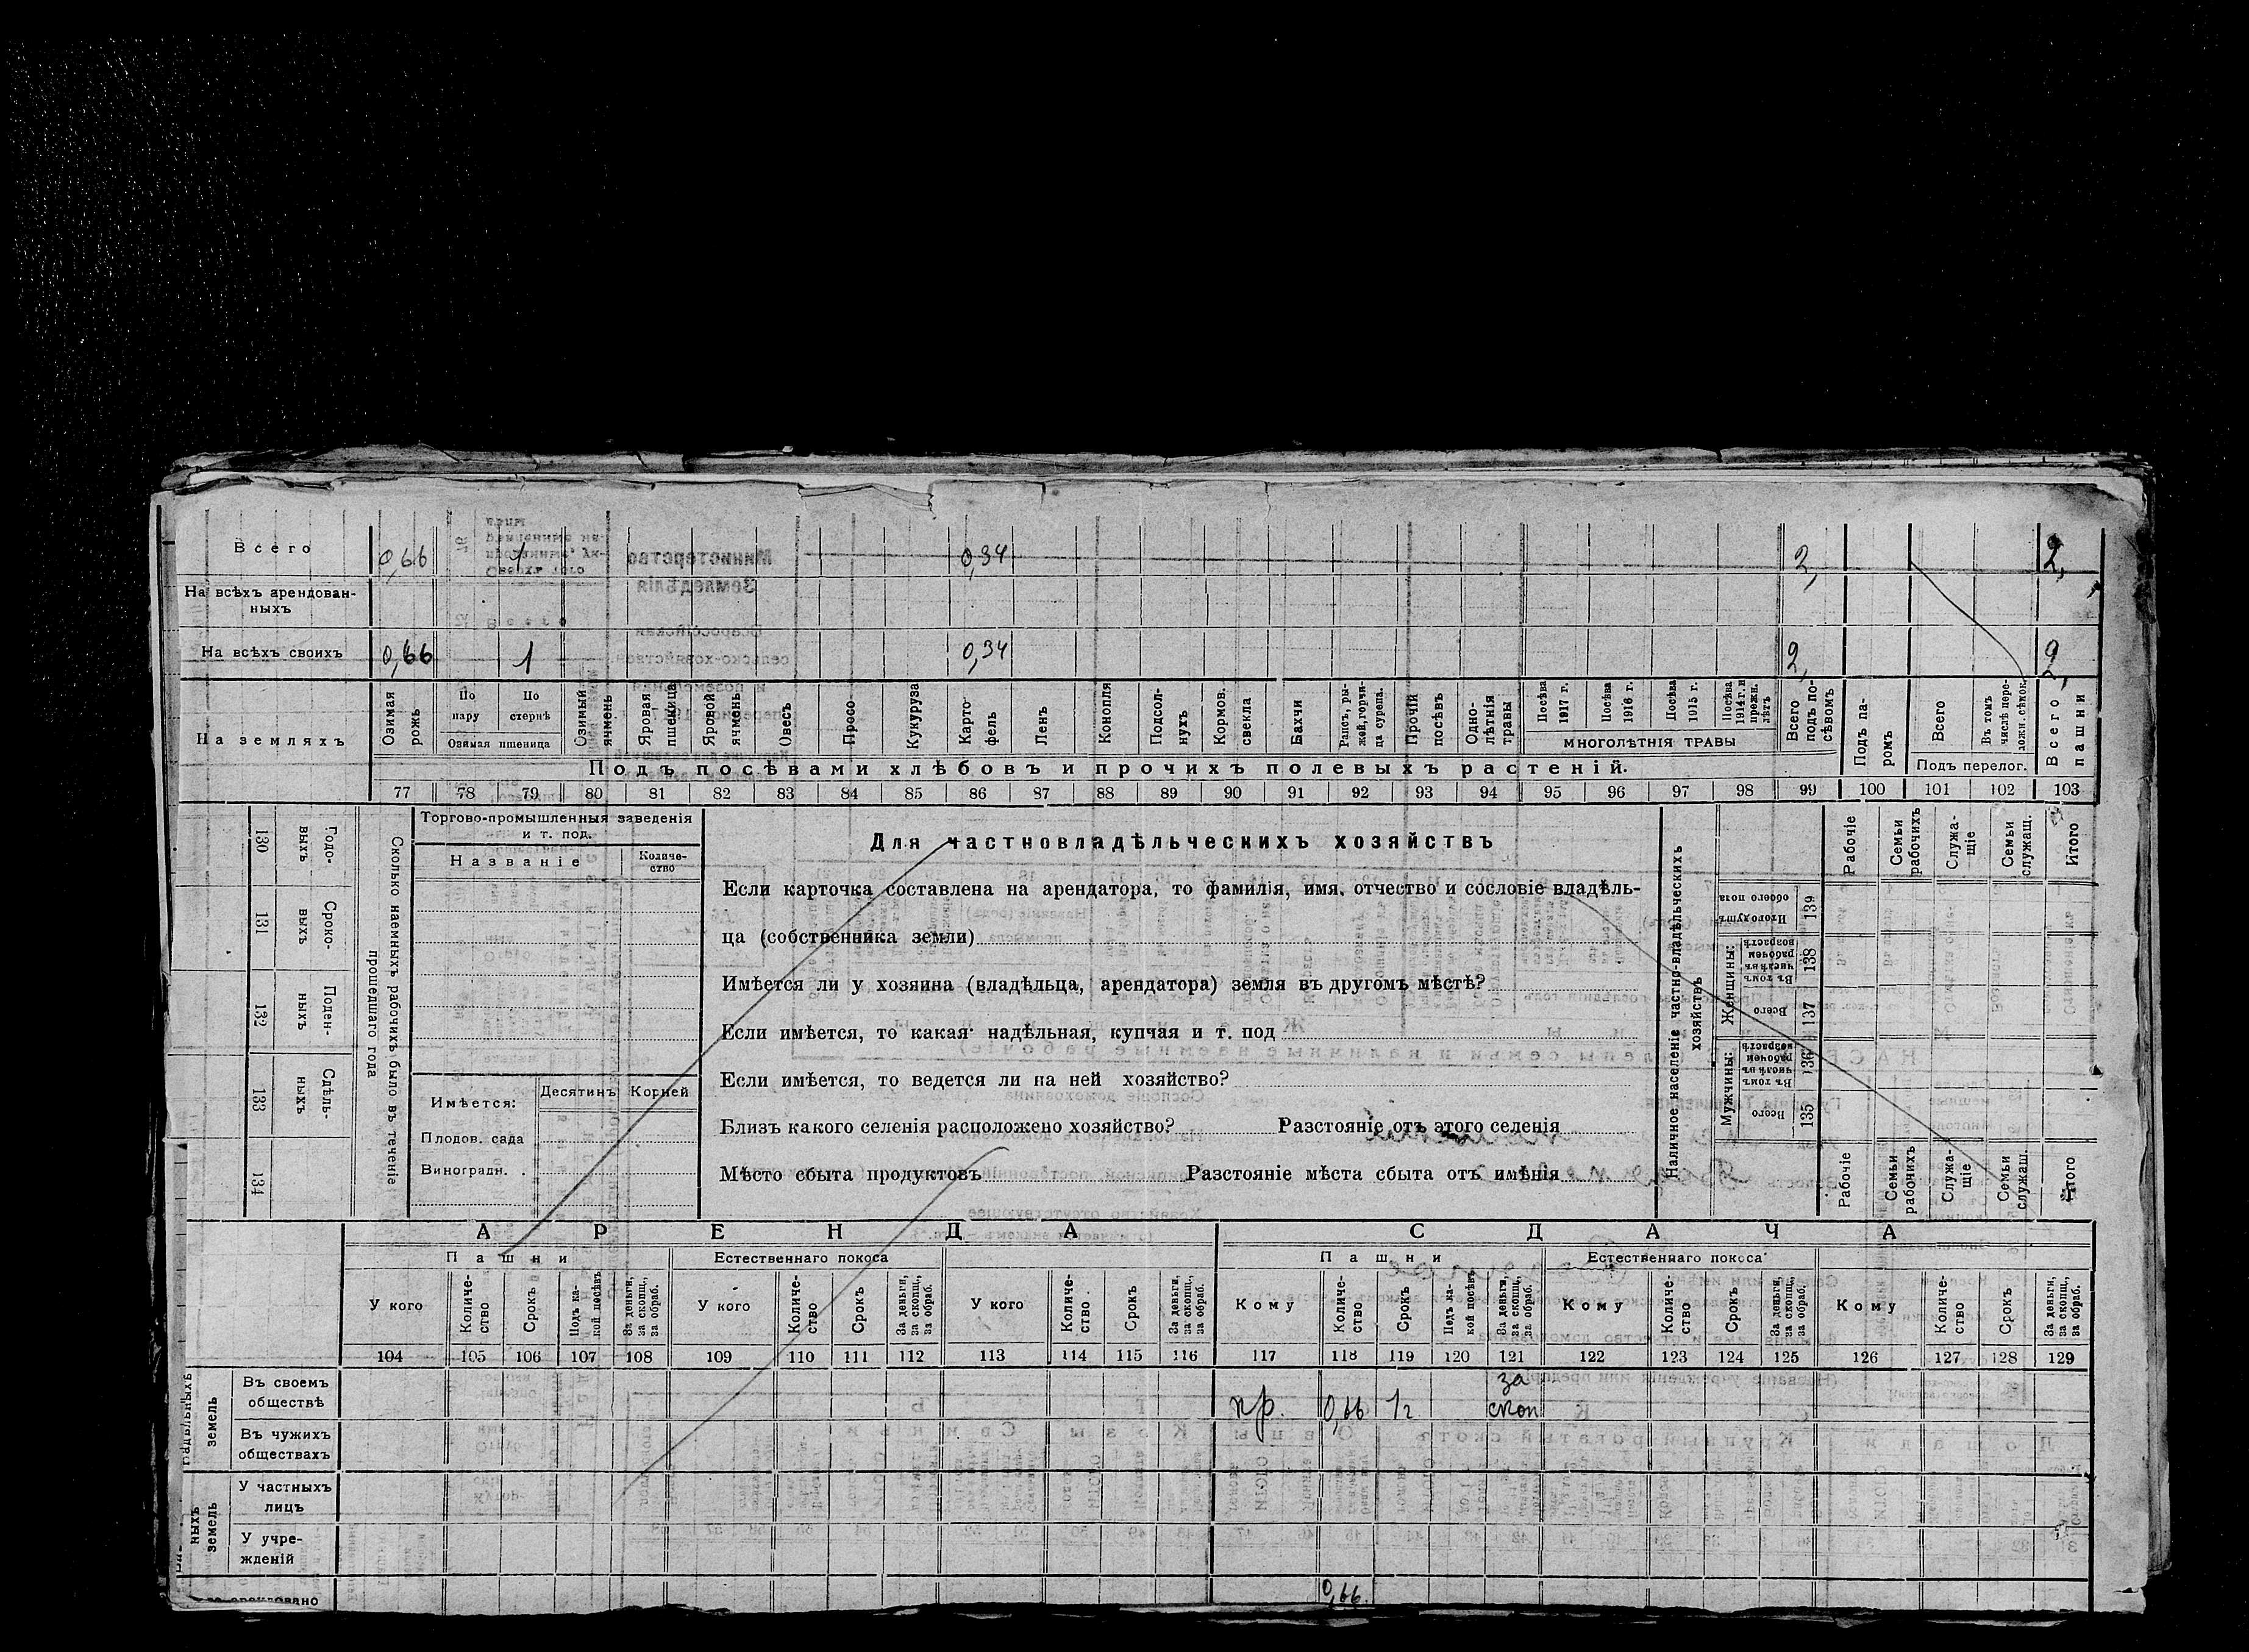 Всего 0,66 1 0,34 2, 2,
На всѣхъ арендован-
ныхъ
На всѣхъ своихъ 0,66 1 0,34 2, 2,
На земляхъ
Озимая рожь
По пару
По стернѣ
Озимая пшеница
Озимый ячмень
Яровая пшеница
Яровой ячмень
Овесъ
Просо
Кукуруза
Карто-
фель
Ленъ
Конопля
Подсол-
нухъ
Кормов. свекла
Бахчи
Рапсъ, ры-
жей, горчи-
ца сурепа.
Прочій посѣвъ
Одно-
лѣтнія травы
Посѣва 1917 г.
Посѣва 1916 г.
Посѣва 1915 г.
Посѣва 1914 г. и прежн. лѣтъ
МНОГОЛѢТНІЯ ТРАВЫ
Всего подъ по-
сѣвомъ
Подъ па-
ромъ
Всего
Въ томъ числѣ пере-
ложн. сѣнок.
Подъ перелог.
Всего пашни
Подъ посѣвами хлѣбовъ и прочихъ полевыхъ растеній.
77 78 79 80 81 82 83 84 85 86 87 88 89 90 91 92 93 94 95 96 97 98 99 100 101 102 103
130 Годо-
выхъ
131 Сроко-
выхъ
132 Поден-
ныхъ
133 Сдѣль-
ныхъ
134
Сколько наемныхъ рабочихъ было въ теченіе
прошедшаго года
Торгово-промышленныя заведенія
и т. под.
Названіе
Количе-
ство
Имѣется:
Десятинъ Корней
Плодов. сада
Виноградн.
Для частновладѣльческихъ хозяйствъ
Если карточка составлена на арендатора, то фамилія, имя, отчество и сословіе владѣль-
ца (собственника земли)
Имѣется ли у хозяина (владѣльца, арендатора) земля въ другомъ мѣстѣ?
Если имѣется, то какая: надѣльная, купчая и т. под
Если имѣется, то ведется ли на ней хозяйство?
Близъ какого селенія расположено хозяйство? Разстояніе отъ этого селенія
Мѣсто сбыта продуктовъ Разстояніе мѣста сбыта отъ имѣнія
Наличное населеніе частно-владѣльческихъ
хозяйствъ
Мужчины:
Женщины:
Всего 135
Въ томъ числѣ въ рабочемъ возрастѣ 136
Всего 137
Въ томъ числѣ въ рабочемъ возрастѣ 138
Итого душъ обоего пола 139
Рабочіе
Семьи рабочихъ
Служа-
щіе
Семьи служащ.
Итого
Рабочіе
Семьи рабочихъ
Служа-
щіе
Семьи служащ.
Итого
АРЕНДА СДАЧА
Пашни Естественнаго покоса Пашни Естественнаго покоса
У кого
Количе-
ство
Срокъ
Подъ ка-
кой посѣвъ
За деньги, за скопщ., за обраб.
У кого
Количе-
ство
Срокъ
За деньги, за скопщ., за обраб.
У кого
Количе-
ство
Срокъ
За деньги, за скопщ., за обраб.
Кому
Количе-
ство
Срокъ
Подъ ка-
кой посѣвъ
За деньги, за скопщ., за обраб.
Кому
Количе-
ство
Срокъ
За деньги, за скопщ., за обраб.
Кому
Количе-
ство
Срокъ
За деньги, за скопщ., за обраб.
104 105 106 107 108 109 110 111 112 113 114 115 116 117 118 119 120 121 122 123 124 125 126 127 128 129
земель
Въ своемъ
обществѣ
пр. 0,66 1 г за
скоп
Въ чужихъ
обществахъ
ныхъ
земель
У частныхъ
лицъ
У учре-
жденій
0,66